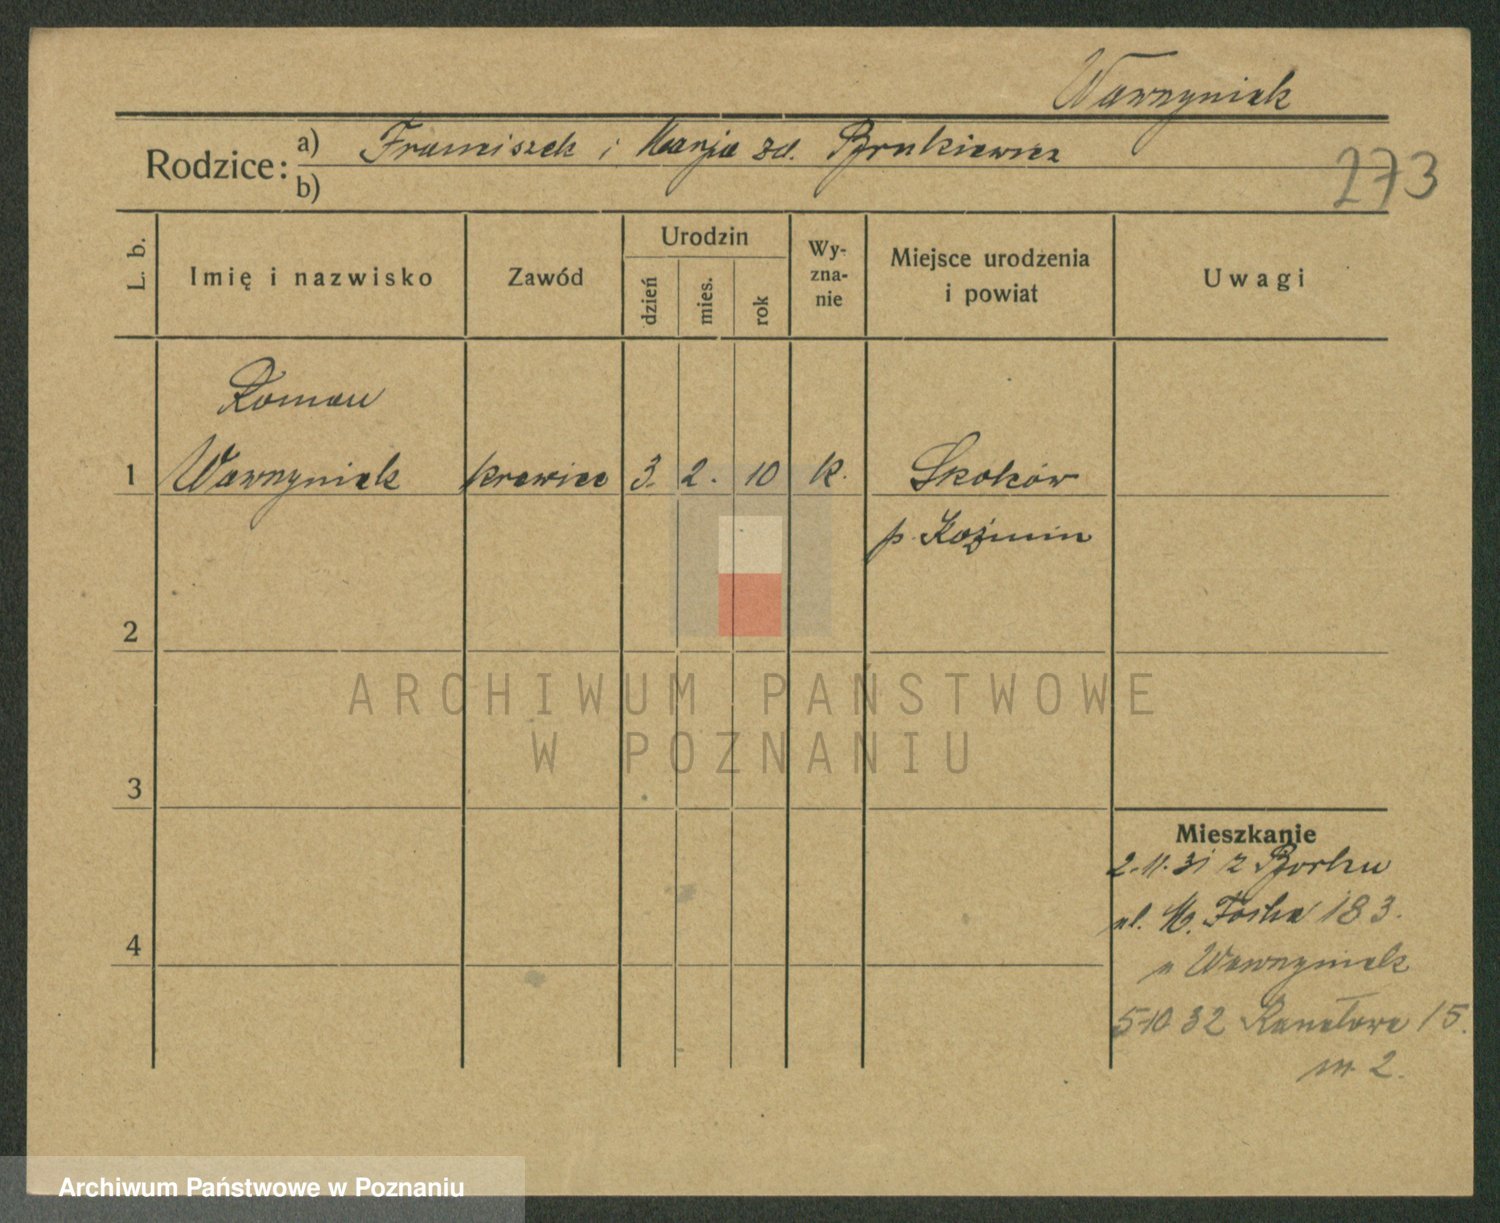 Wawrzyniak
Rodzice: a) Franciszek i Marja zd. Brukiewicz
b)
273
L. b.
Imię i nazwisko
Zawód
Urodzin
dzień
mies.
rok
Wy-
zna-
nie
Miejsce urodzenia
i powiat
Uwagi
Roman
1 Wawrzyniak krawiec 3. 2. 10 k. Skoków
p. Koźmin
2
3
4
Mieszkanie
2.11.31 z Borku
ul. M. Focha 183.
u Wawrzyniak
5-10 32 Kanałowa 15.
m 2.
ARCHIWUM PAŃSTWOWE
W POZNANIU
Archiwum Państwowe w Poznaniu